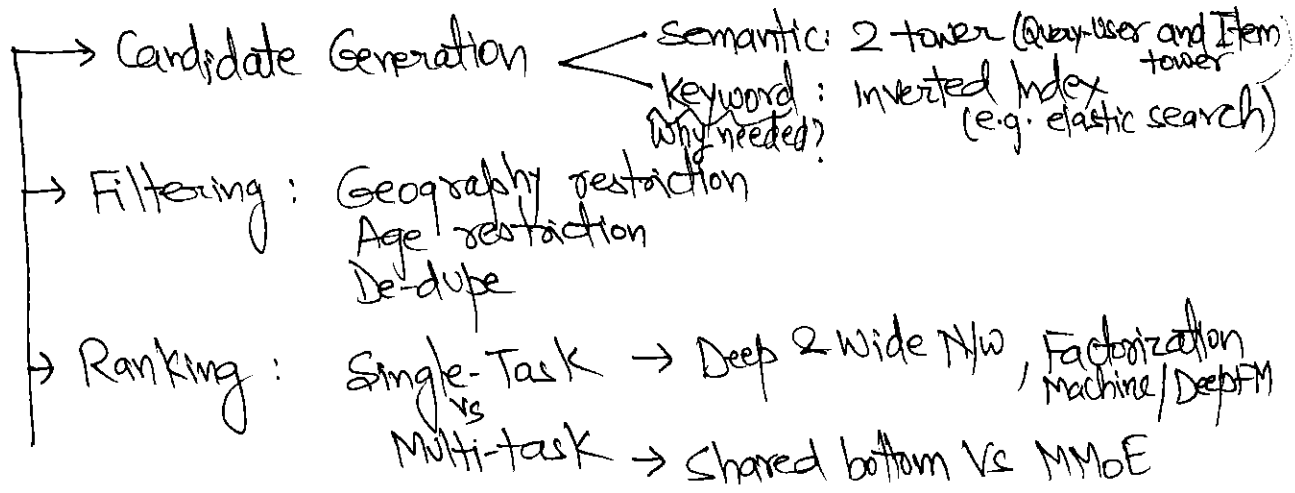 → Candidate Generation
Semantic: 2 tower (Query-User and Item tower)
Keyword: Inverted Index
Why needed?
(e.g. elastic search)
→ Filtering: Geography restriction
Age restriction
De-dupe
→ Ranking: Single-Task → Deep & Wide N/W, Factorization
Machine/DeepFM
vs
Multi-task → Shared bottom Vs MMoE